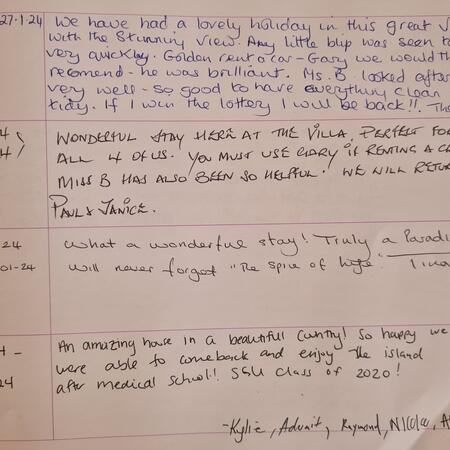 27-1-24 We have had a lovely holiday in this great
with the Stunning View. Any little blip was seen to
very quickly. Golden rent a car - Gary we would th
recomend - he was brilliant. Ms. B looked after
very well - so good to have everything clean
tidy. If I win the lottery I will be back!!
WONDERFUL STAY HERE AT THE VILLA. PERFECT FOR
ALL 4 OF US. YOU MUST USE GARY IF RENTING A CA
MISS B HAS ALSO BEEN SO HELPFUL. WE WILL RETUR
PAUL & JANICE.
24 What a wonderful stay! Truly a Paradi
01-24 will never forget "The spice of life".
An amazing house in a beautiful country! So happy we
were able to come back and enjoy the island
24 after medical school! SGU Class of 2020!
-Kylie, Advait, Raymond, Nicole, A